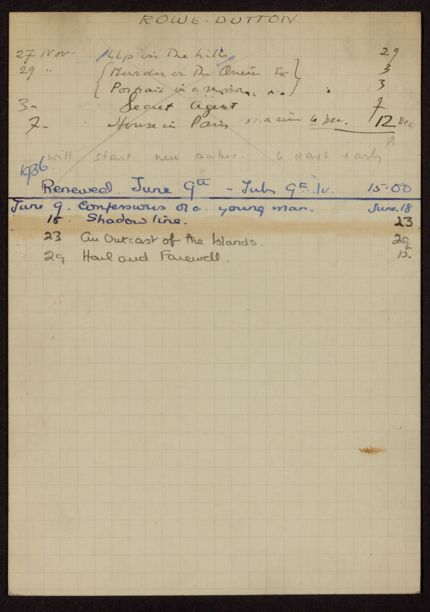 ROWE-DUTTON
27 Nov. Up in the hills 29
29 " Murder on the Orient Ex 3
Portrait in a mirror 3
3 - Secret Agent 7
7 - House in Paris 6 Dec. 12 Dec
will start new subsc. 6 days early
1936
Renewed June 9th - July 9th 15.00
June 9. Confessions of a young man. June. 18
18. Shadow line. 23
23 An Outcast of the Islands. 29
29 Hail and Farewell.